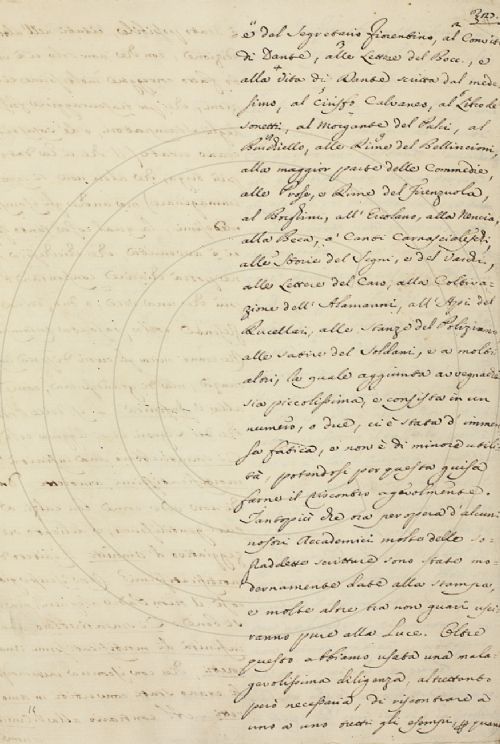 e del Segretario Fiorentino, al Convito
di Dante, alle Lettere del Bocc., e
alla Vita di Dante scritta dal mede
simo, al Ciriffo Calvaneo, al Libro de
sonetti, al Morgante del Pulci, al
Burchiello, alle Rime del Bellincioni,
alla maggior parte delle Commedie,
alle Prose, e Rime del Firenzuola,
al Borghini, all' Ercolano, alla Nencia,
alla Beca, a' Canti Carnascialeschi,
alle Storie del Segni, e del Varchi,
alle Lettere del Caro, alla Coltiva-
zione dell' Alamanni, all' Api del
Rucellai, alle Stanze del Poliziano
alle Satire del Soldani, e a molti
altri, la quale aggiunta avvegnachè
sia piccolissima, e consista in un
numero, o due, ci è stata d' immen
sa fatica, e non è di minore utili
tà, potendosi per questa guisa
farne il riscontro agevolmente.
Tantopiù che ora per opera d' alcuni
nostri Accademici molte delle so-
praddette scritture sono state mo-
dernamente date alla stampa,
e molte altre tra non guari usci
ranno pure alla Luce. Oltre
questo abbiamo usata una mala-
gevolissima diligenza, altrettanto
però necessaria, di riscontrare a
uno a uno tutti gli esempi,